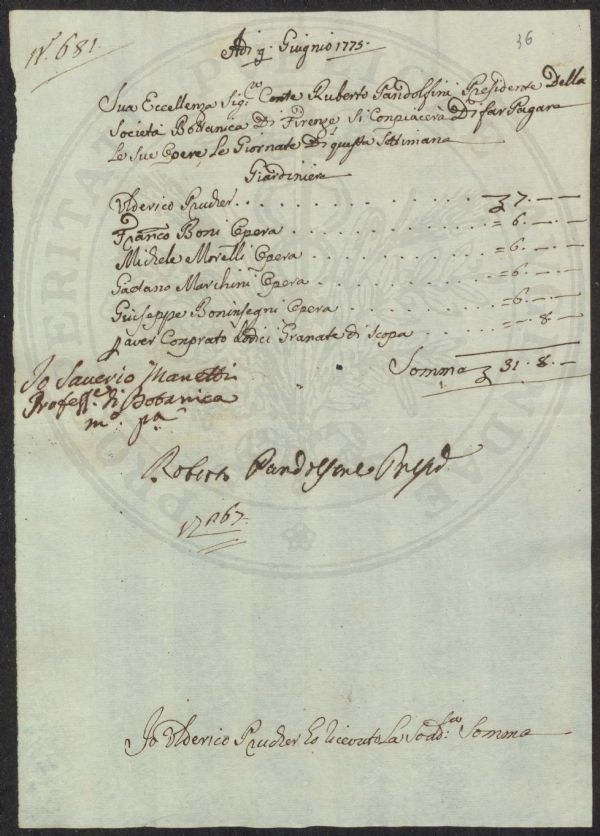 N.° 681.
36
Adi 9. Giugnio 1775.
Sua Eccellenza Sig.re Conte Ruberto Pandolfini Presidente Della
Società Bottanica Di Firenze Si Conpiacerà Di far Pagare
Le Sue Opere, Le Giornate Di questa Settimana
Giardiniere
Ulderico Prucher . . . . . . . . . . 7. — —
Franco Boni Opera . . . . . . . . = 6. — —
Michele Morelli Opera . . . . . . . = 6. — —
Gaetano Marchini Opera . . . . . . = 6. — —
Guiseppe Boninsegni Opera . . . . . = 6. — —
p aver Conprato dodici Granate di Scopa . . . . = — 8. —
Somma 31. 8. —
Io Saverio Manetti
Profess.e di Botanica
m.o p.a
Roberto Pandolfini Presid
N.° 67.
Io Ulderico Prucher Ho ricevuto La Sodd: Somma
PRO